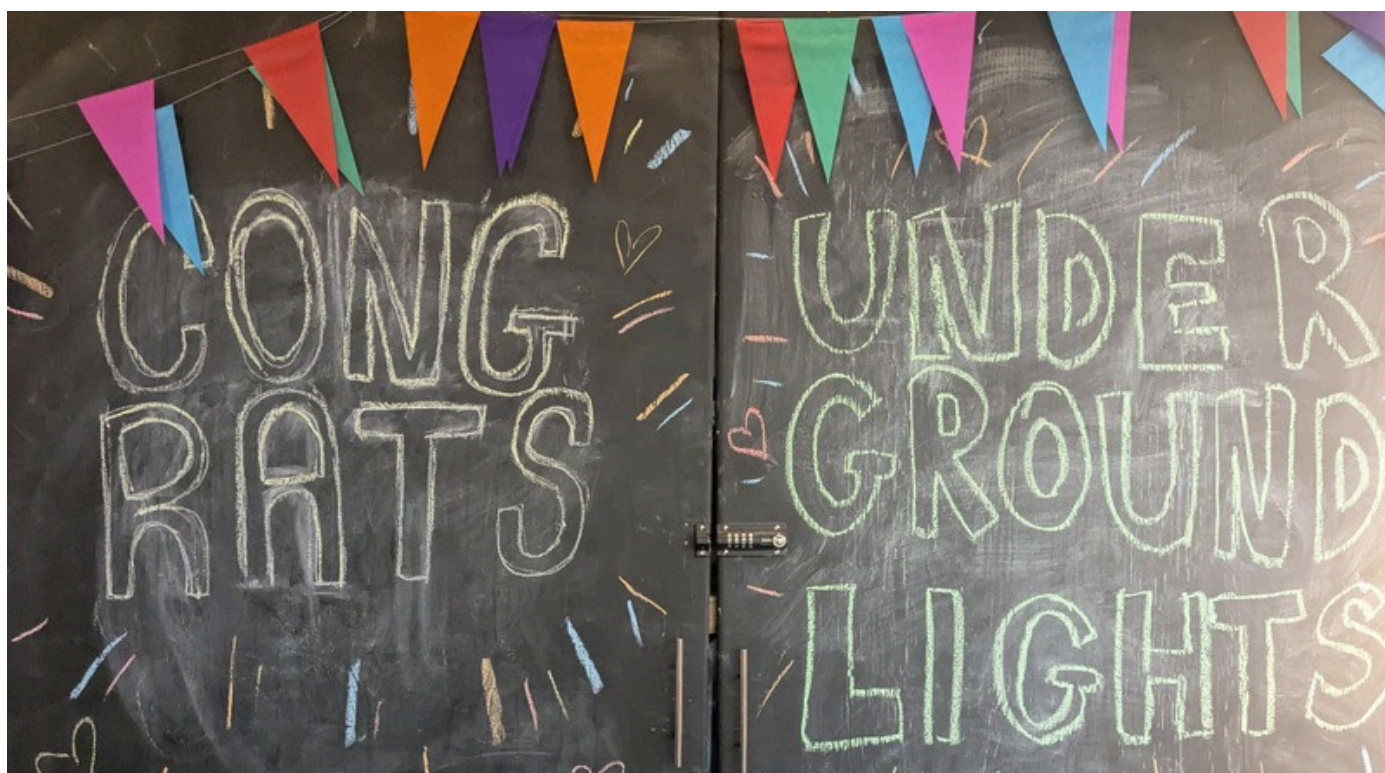 CONG
RATS
UNDER
GROUND
LIGHTS